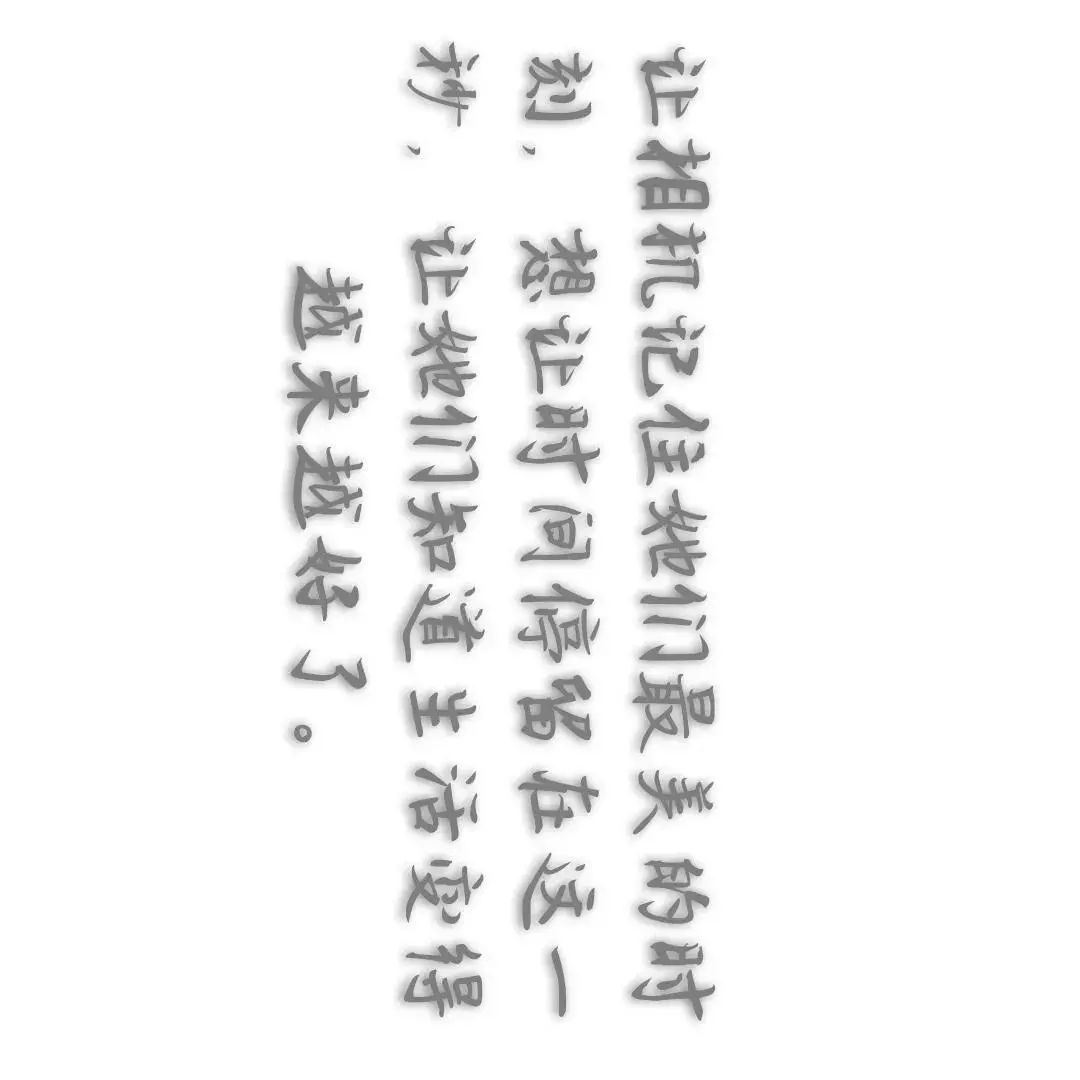 让相机记住她们最美的时
刻，想让时间停留在这一
秒，让她们知道生活变得
越来越好了。